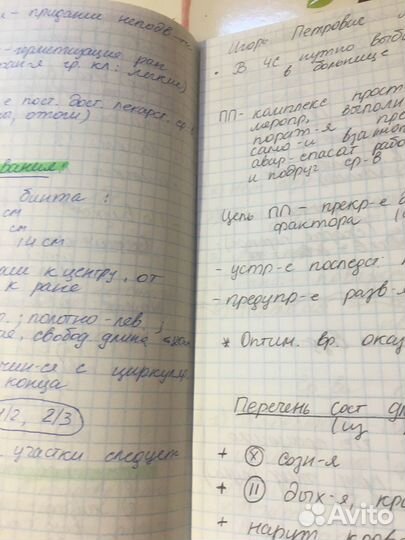 - придание неподв-
- герметизация ран
гр. кл: легкие)
е пост. дост. лекарс. ср-
, ожоги)
вания:
бинта :
см
см
14 см
к центру, от
к ране
; полотно - лев. ;
свобод. длина
-ся с циркуля.
конца
1/2, 2/3
участки следует
Игорь Петрович
• В ЧС нужно
в больнице
ПП - комплекс прост
меропр, выполн
само-и взаимо
авар-спасат рабо
и подруч ср-в
Цель ПП - прекр-е
фактора
- устр-е последст.
- предупр-е разв-
* Оптим. вр. оказ
Перечень сост
(из
+ X созн-я
+ II дых-я
+ наруж кров
Avito